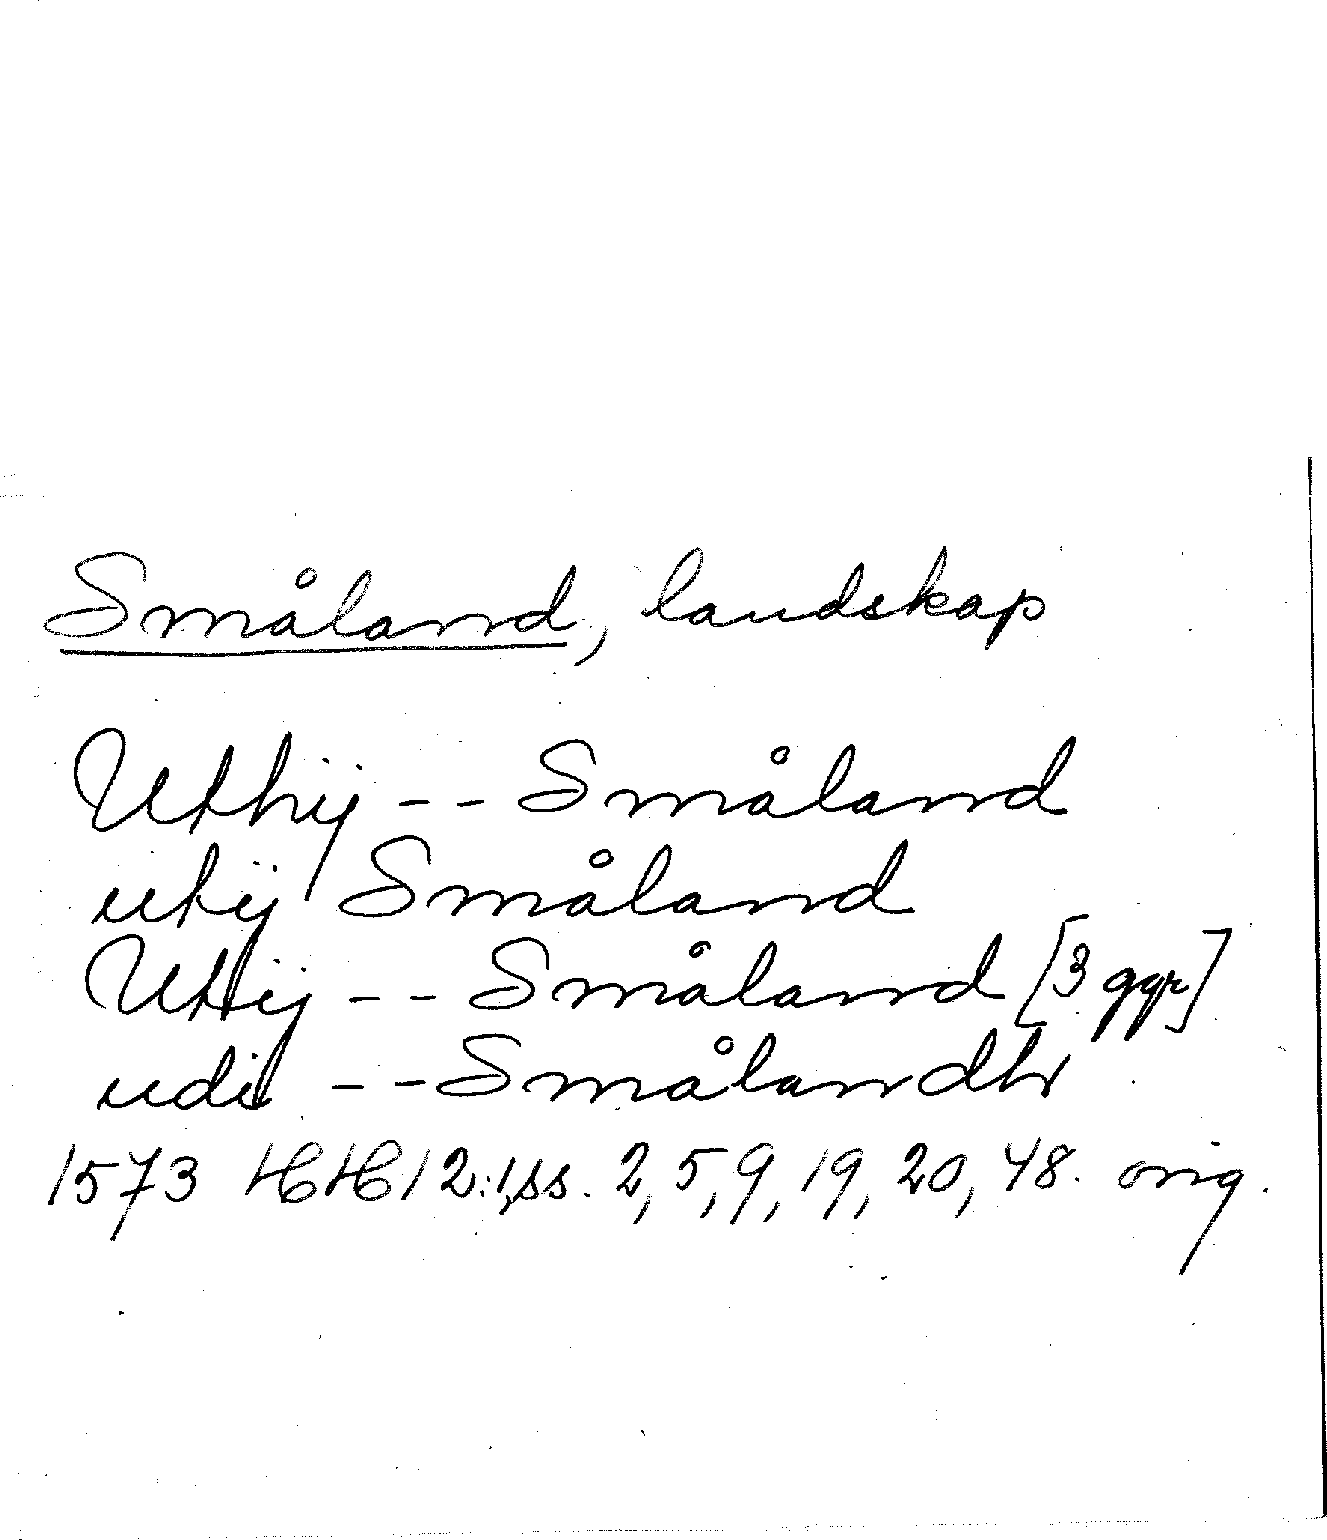 Småland, landskap
Uthij -- Småland
utij Småland
Utij -- Småland [3 ggr]
udi -- Smålandh
1573 HH 12:1, ss. 2, 5, 9, 19, 20, 48. orig.